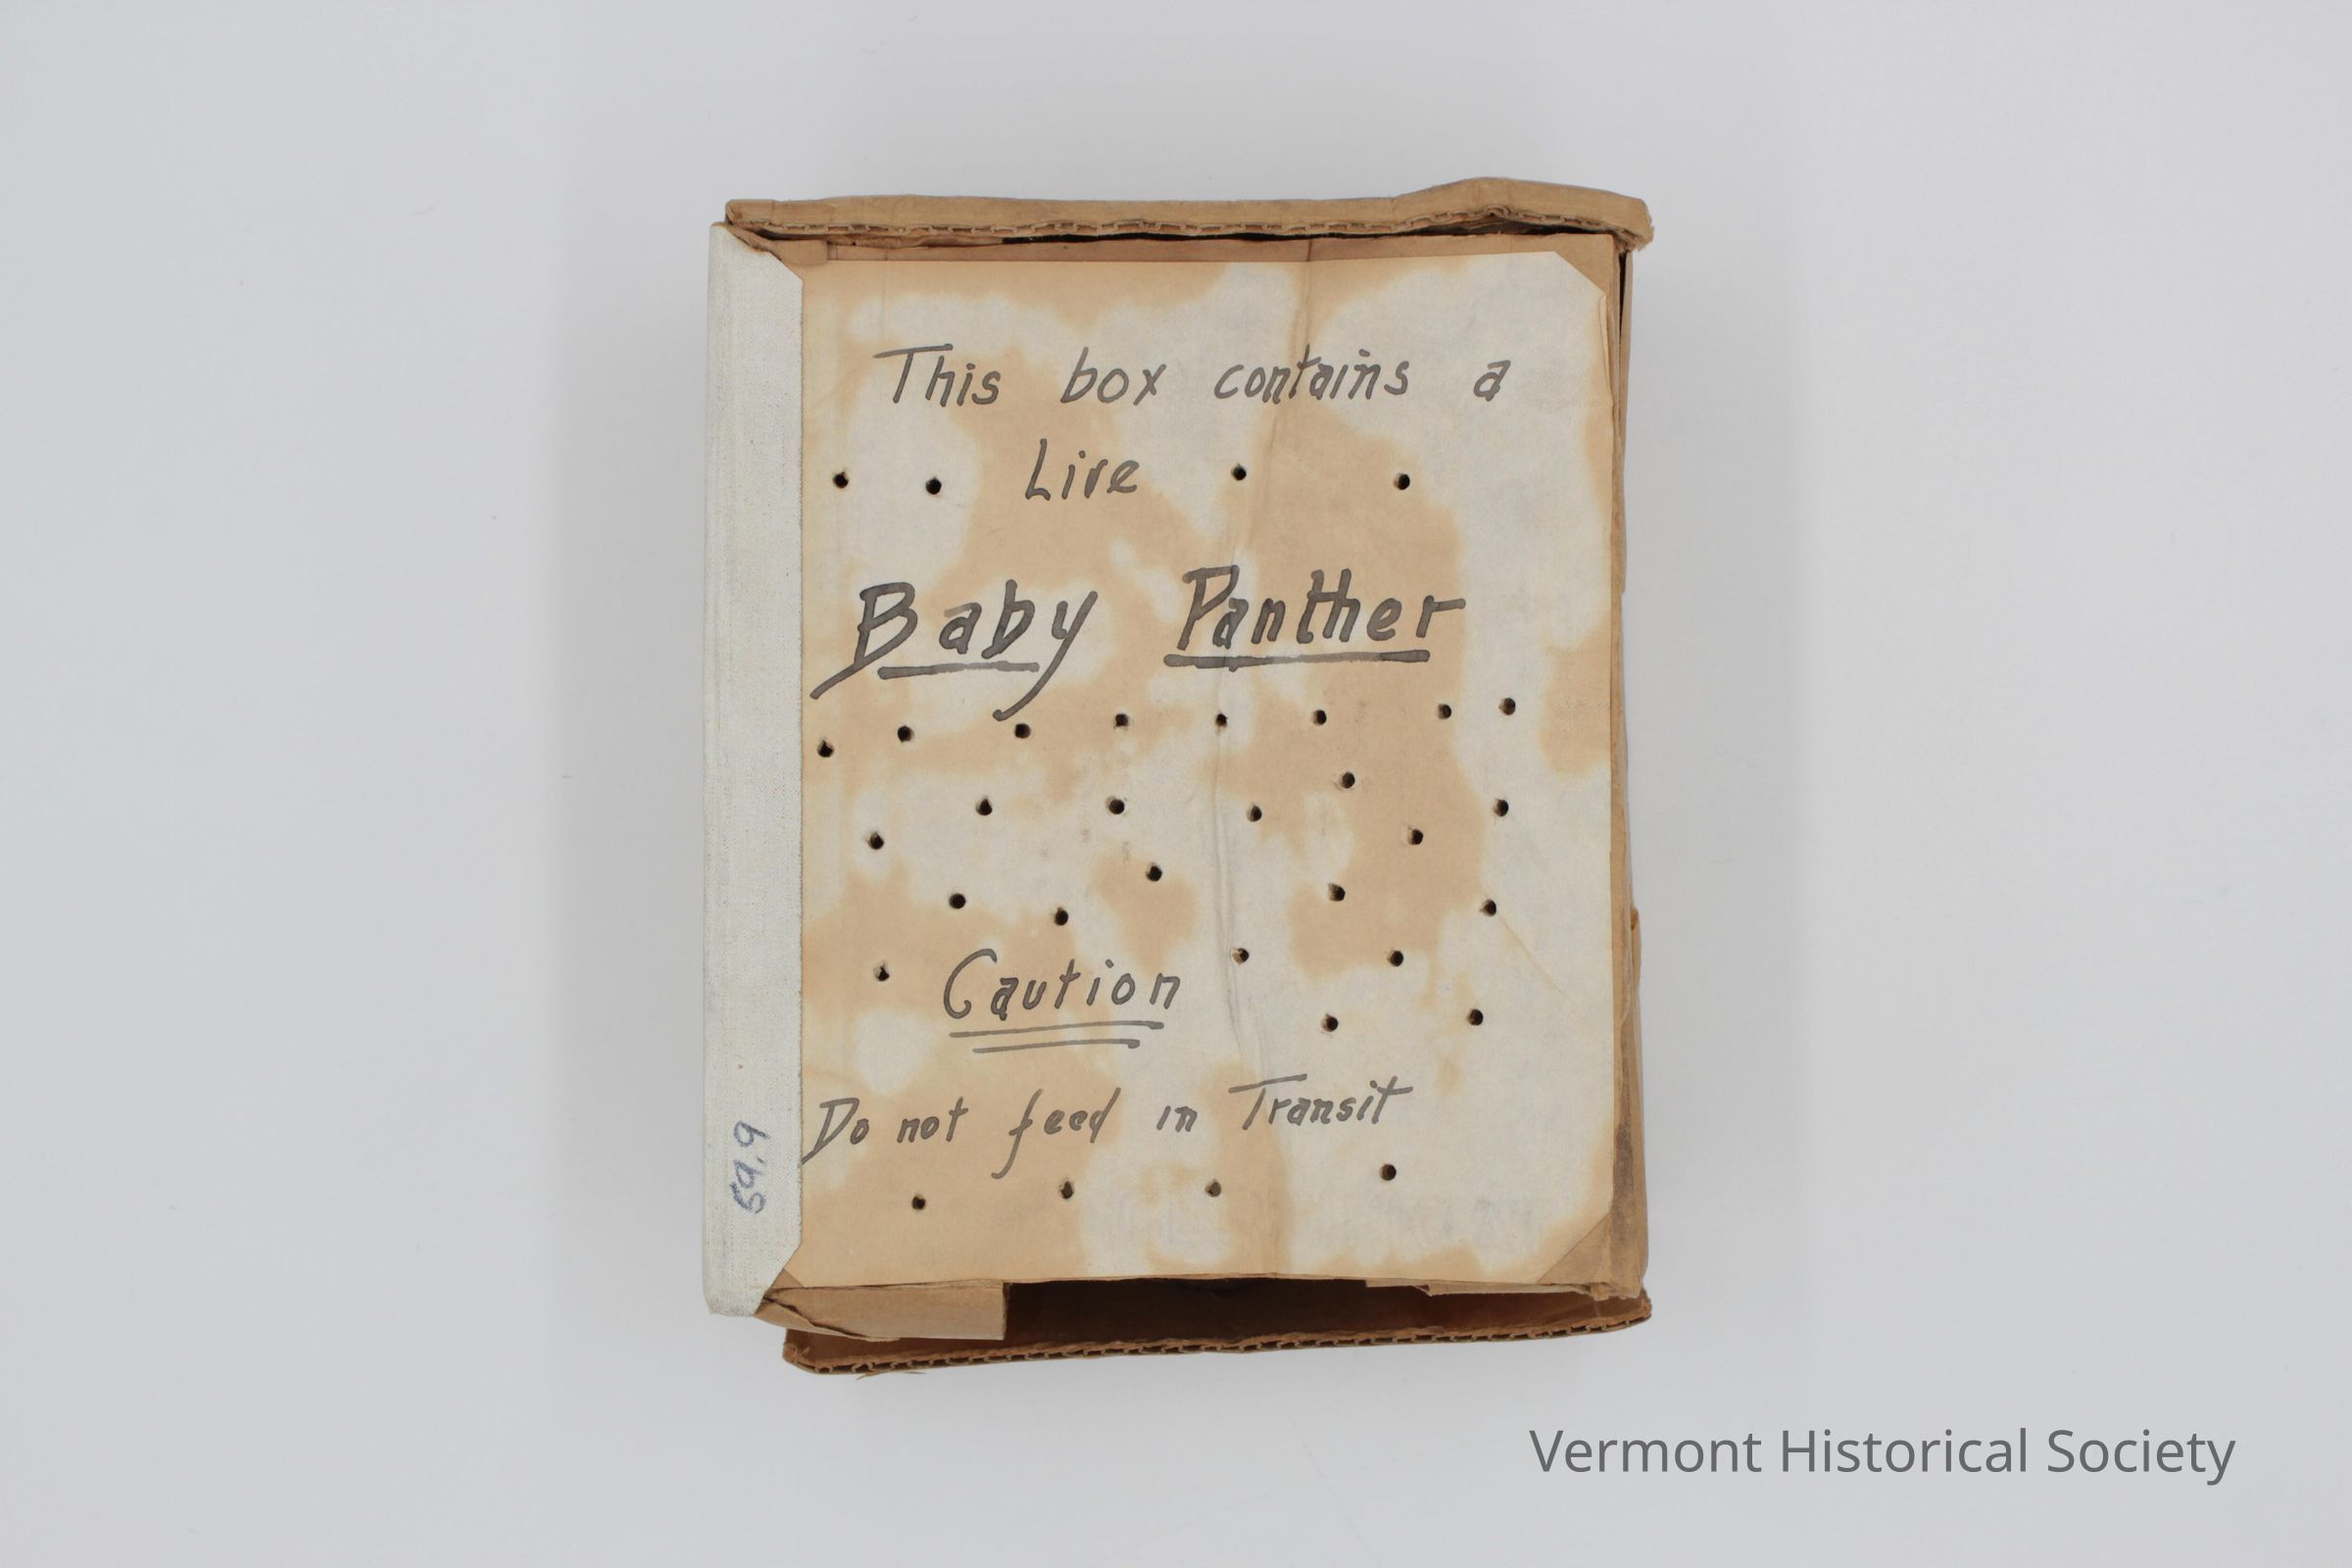 This box contains a
Live
Baby Panther
Caution
Do not feed in Transit
59.9
Vermont Historical Society